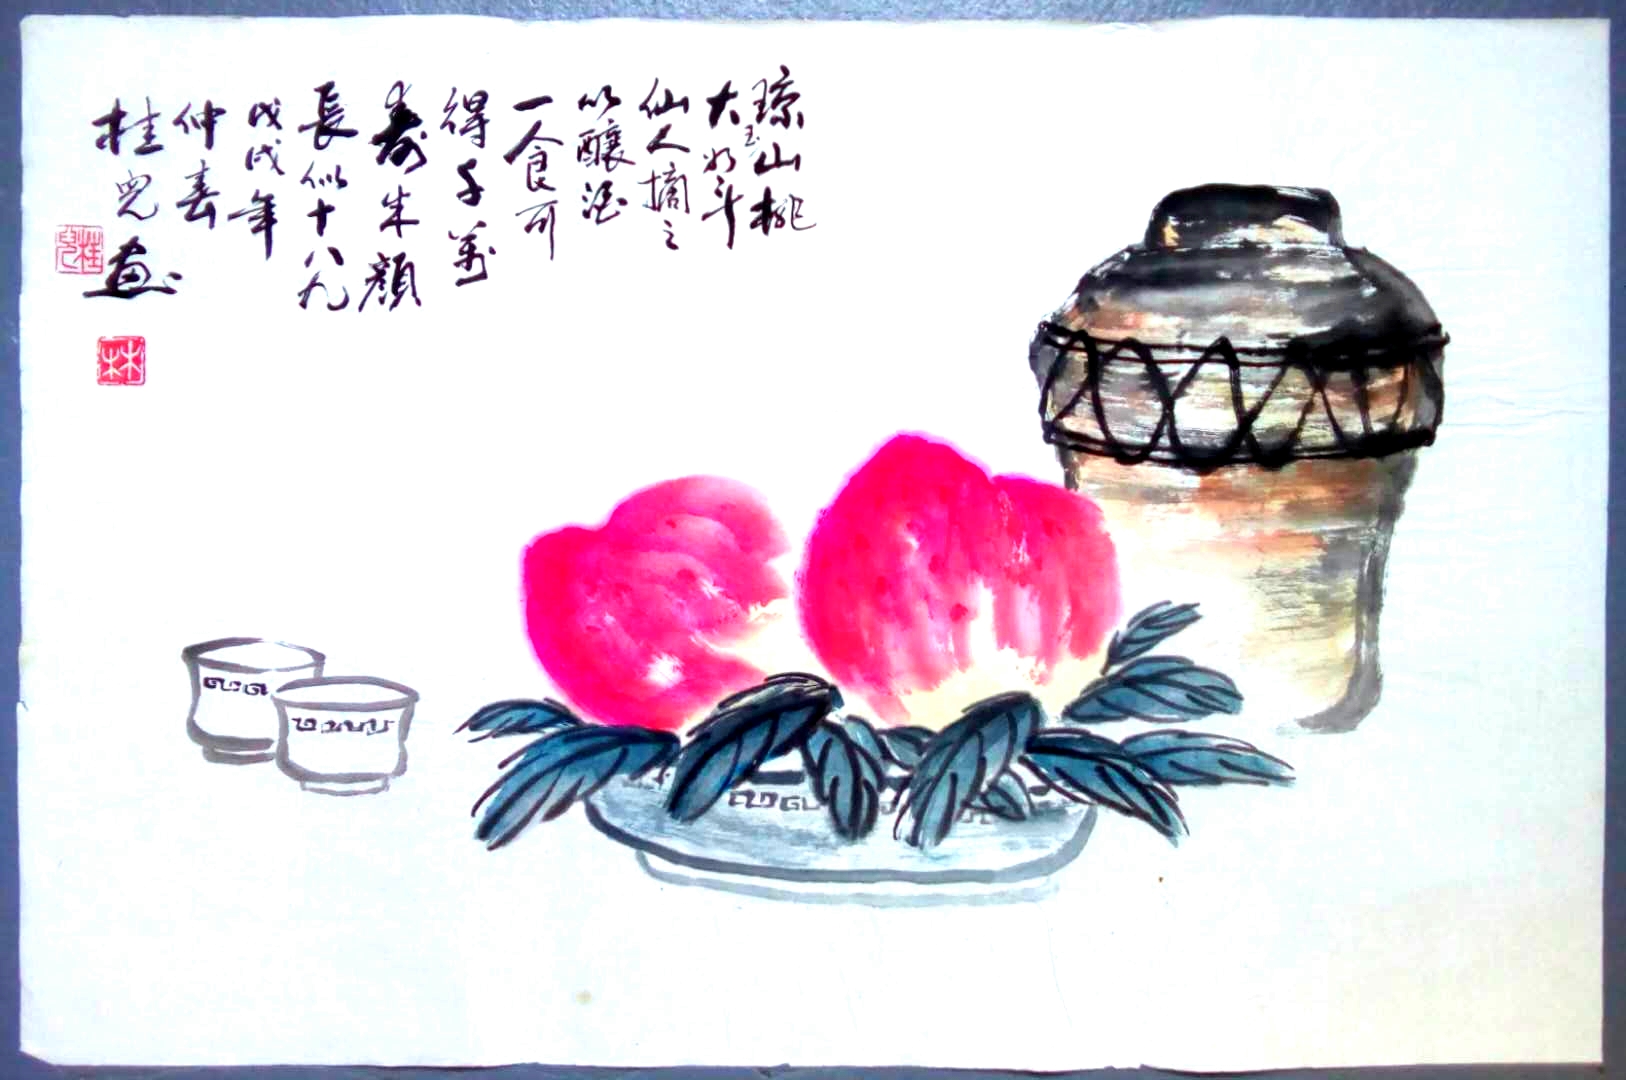 琼山桃
大如斗
仙人摘之
以釀酒
一食可
得千萬
壽朱顏
長似十八九
戊戌年
仲春
桂兒畫
桂兒
林